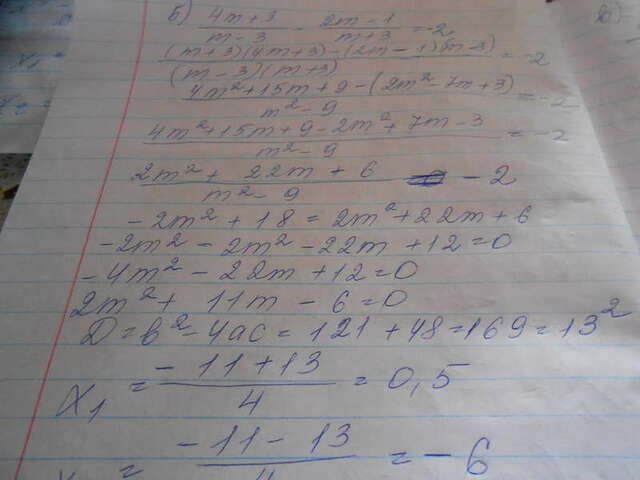 б) (4m+3)/(m-3) - (2m-1)/(m+3) = -2
((m+3)(4m+3)-(2m-1)(m-3))/((m-3)(m+3)) = -2
(4m²+15m+9-(2m²-7m+3))/(m²-9) = -2
(4m²+15m+9-2m²+7m-3)/(m²-9) = -2
(2m²+22m+6)/(m²-9) = -2
-2m²+18=2m²+22m+6
-2m²-2m²-22m+12=0
-4m²-22m+12=0
2m²+11m-6=0
D=b²-4ac=121+48=169=13²
x₁ = (-11+13)/4 = 0,5
= (-11-13)/4 = -6